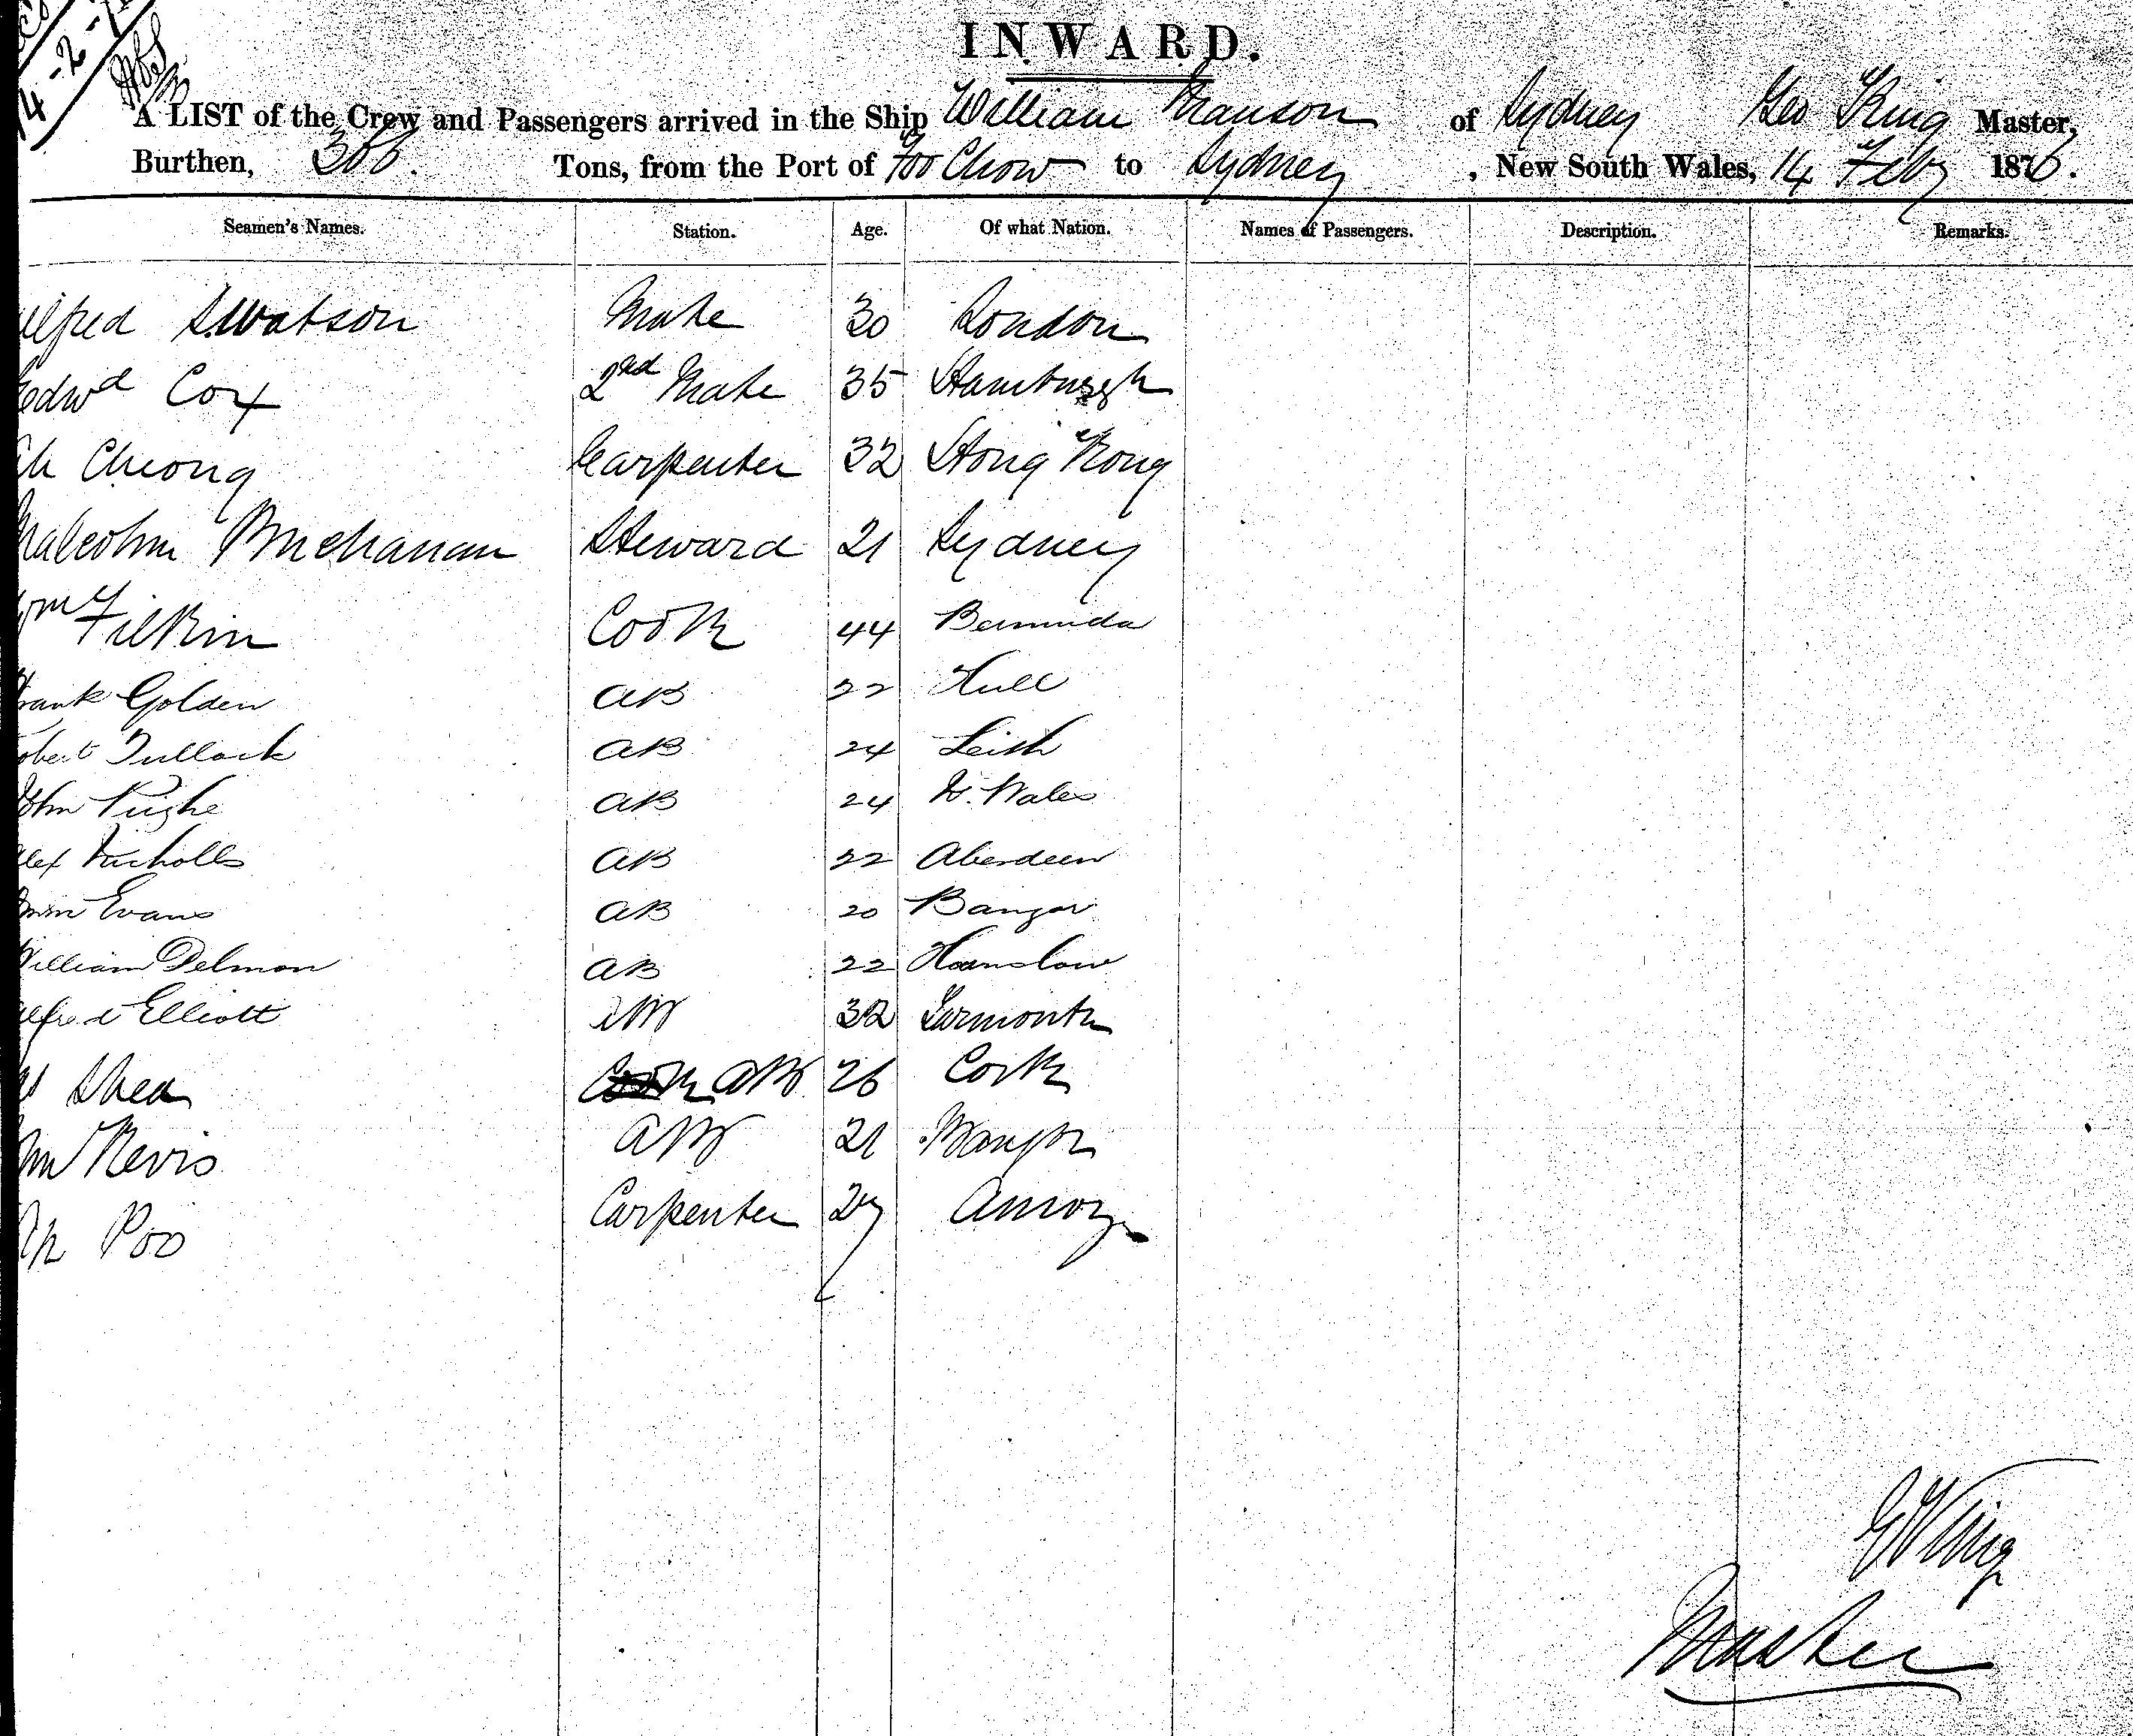 4 -2-
INWARD.
A LIST of the Crew and Passengers arrived in the Ship William Manson of Sydney Geo King Master,
Burthen, 366 Tons, from the Port of Foo Chow to Sydney, New South Wales, 14 Feby 1876.
Seamen's Names. Station. Age. Of what Nation. Names of Passengers. Description. Remarks.
Alfred S Watson Mate 30 London
Edwd Cox 2nd Mate 35 Hamburgh
Ah Cheong Carpenter 32 Hong Kong
Malcolm Buchanan Steward 21 Sydney
Wm Filkin Cook 44 Bermuda
Frank Golden AB 22 Hull
Robert Tullock AB 24 Leith
John Pughe AB 24 N. Wales
Alex Nicholls AB 22 Aberdeen
Evans AB 20 Bangor
William Delmon AB 22 Hounslow
Alfred Elliott AB 32 Yarmouth
Shea AB 26 Cork
Wm Nevis AB 21 Bangor
Ah Poo Carpenter 27 Amoy
G King
Master